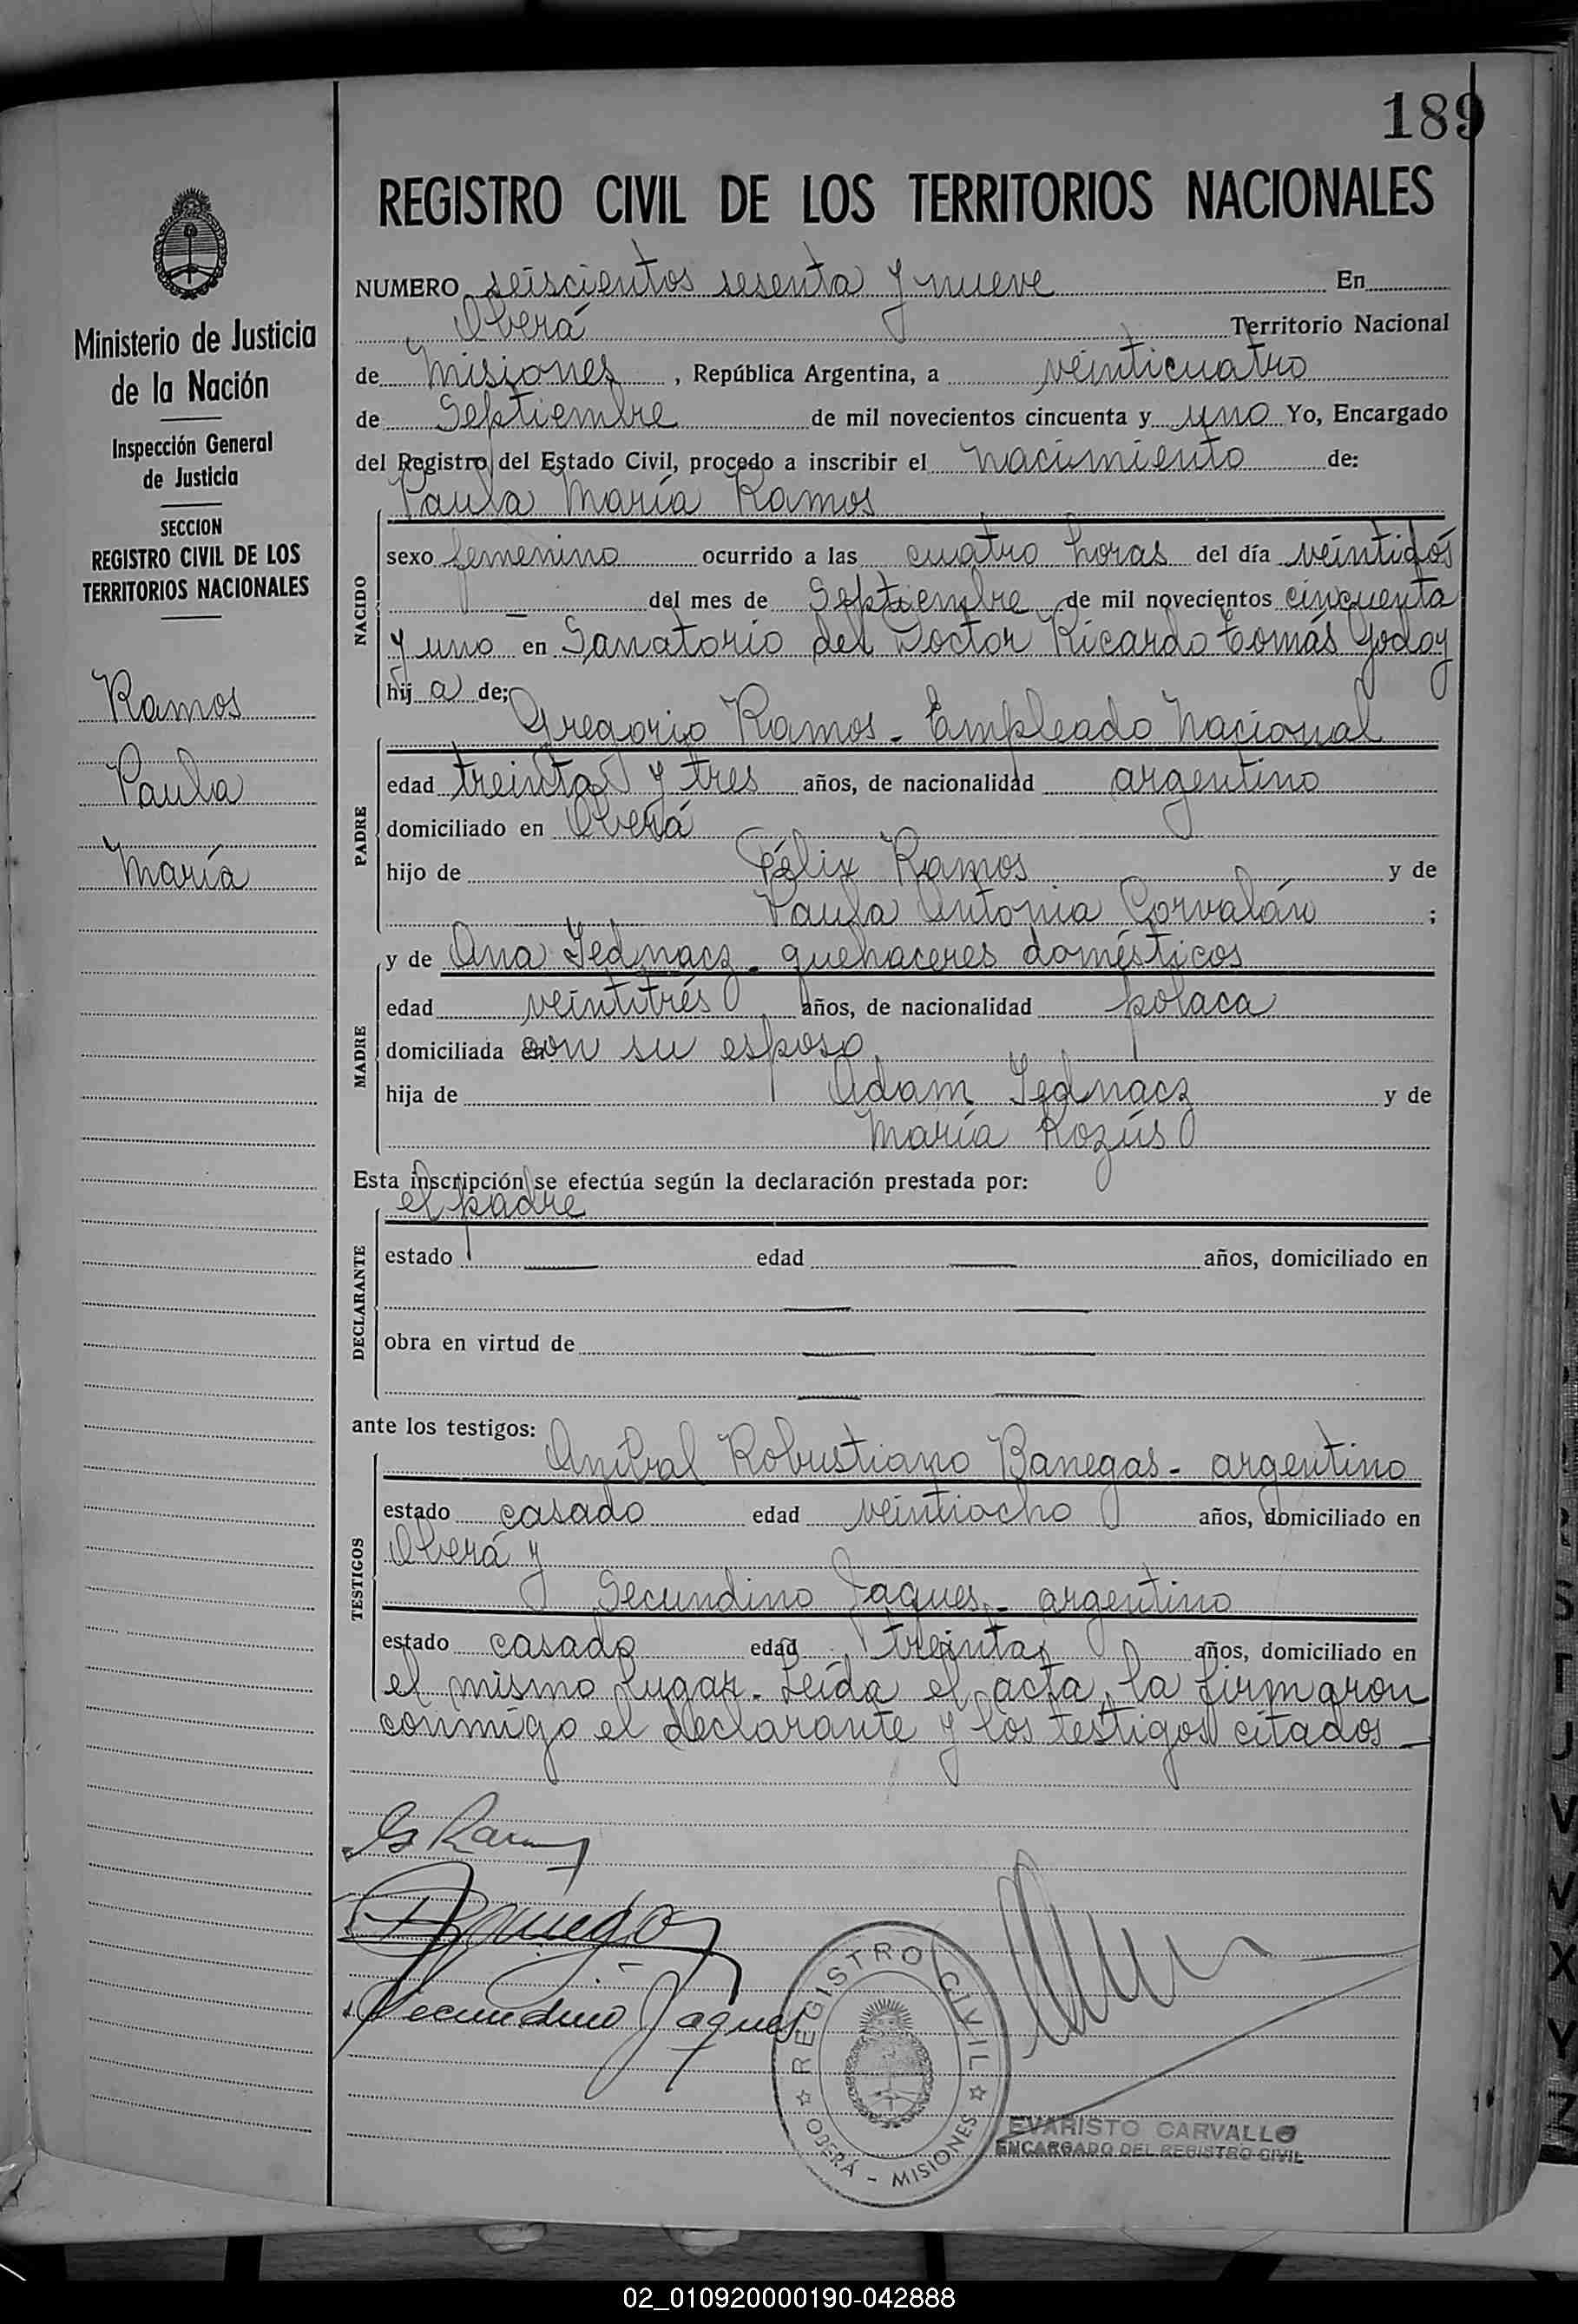 189
REGISTRO CIVIL DE LOS TERRITORIOS NACIONALES
Ministerio de Justicia
de la Nación
Inspección General
de Justicia
SECCION
REGISTRO CIVIL DE LOS
TERRITORIOS NACIONALES
Ramos
Paula
María
NUMERO seiscientos sesenta y nueve En
Oberá Territorio Nacional
de Misiones, República Argentina, a veinticuatro
de Septiembre de mil novecientos cincuenta y uno Yo, Encargado
del Registro del Estado Civil, procedo a inscribir el nacimiento de:
Paula María Ramos
NACIDO
sexo femenino ocurrido a las cuatro horas del día veintidós
del mes de Septiembre de mil novecientos cincuenta
y uno en Sanatorio del Doctor Ricardo Tomás Godoy
hij a de:
Gregorio Ramos - Empleado Nacional
PADRE
edad treinta y tres años, de nacionalidad argentino
domiciliado en Oberá
hijo de Félix Ramos y de
Paula Antonia Corvalán ;
y de Ana Jednacz - quehaceres domésticos
MADRE
edad veintitrés años, de nacionalidad polaca
domiciliada en con su esposo
hija de Adam Jednacz y de
María Kozús
Esta inscripción se efectúa según la declaración prestada por:
el padre
DECLARANTE
estado — edad — años, domiciliado en
— —
obra en virtud de — —
— —
ante los testigos:
Aníbal Robustiano Banegas - argentino
TESTIGOS
estado casado edad veintiocho años, domiciliado en
Oberá y
Secundino Jaques - argentino
estado casado edad treinta años, domiciliado en
el mismo lugar. Leída el acta, la firmaron
conmigo el declarante y los testigos citados —
G Ramos
Banegas
Secundino Jaques
REGISTRO CIVIL
OBERÁ - MISIONES
EVARISTO CARVALLO
ENCARGADO DEL REGISTRO CIVIL
02_010920000190-042888